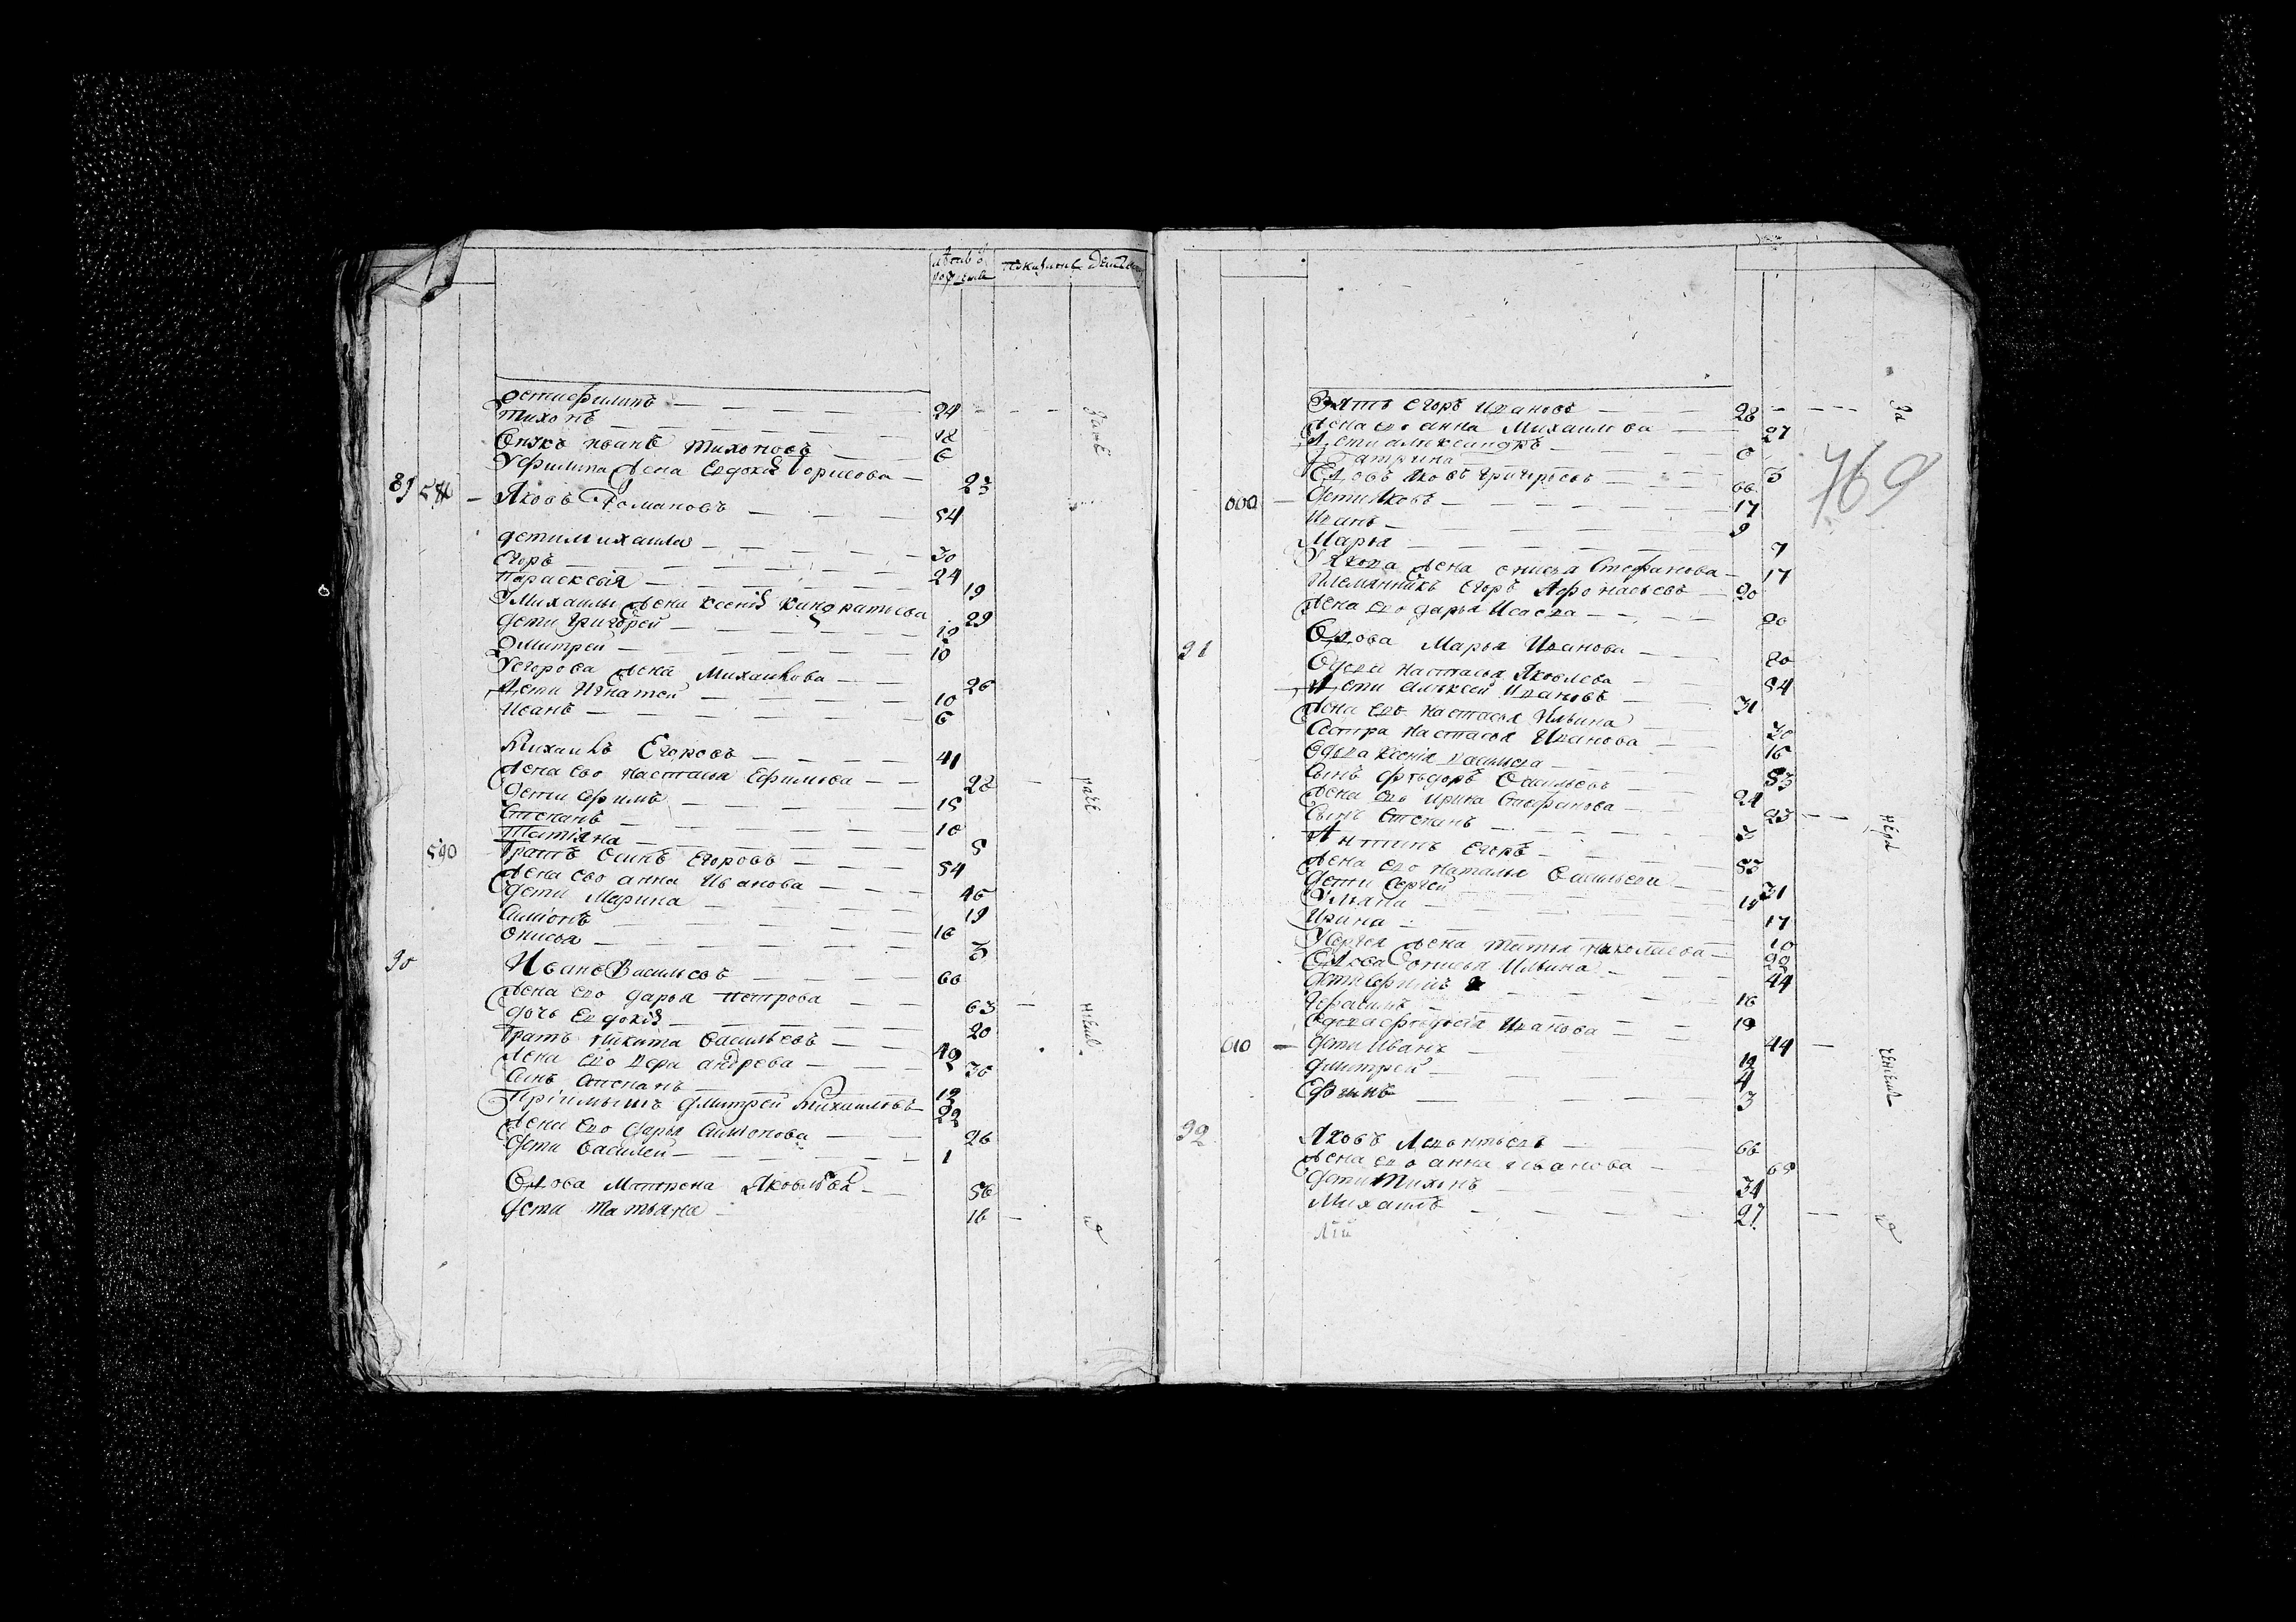 Дети Филипъ 24
Тихонъ 12
Внукъ иванъ Тихоновъ 6
У Филипа жена Евдокия Борисова 23
89 Яковъ Романовъ 54
дети михаила 30
Егоръ 24
Параскевия 19
У Михаилы жена ксения кандратиева 29
Дети Григорей 12
Дмитрей 10
У егорова жена Михаилова 26
Дети Игнатей 10
Иванъ 6
Михаилъ Егоровъ 41
Жена ево Настасья Ефимова 28
Дети ефимъ 15
Степанъ 10
Татияна 5
590 Братъ Осипъ Егоровъ 54
Жена ево анна Иванова 46
Дети Марина 19
Симионъ 16
онисья 3
90 Иванъ Васильевъ 60
Жена ево дарья петрова 63
дочь Евдокия 20
Братъ никита васильевъ 40
Жена ево вера андрева 30
сынъ степанъ 12
Приимышъ дмитрей Михаиловъ 22
Жена ево дарья симионова 26
Дети василей 1
Вдова Матрена Яковлева 56
Дети татьяна 16
769
Зять егоръ Ивановъ 28
Жена ево анна Михаилова 27
Дети александръ 6
Катрина 3
Вдовъ Яковъ григорьевъ 66
600 Дети Яковъ 17
Иванъ 9
Марья 7
У Якова жена онисья Стефанова 17
Племянникъ егоръ Афонасьевъ 20
Жена ево дарья Исаева 20
91 Вдова Марья Иванова 80
Вдова настасья Яковлева 54
Дети алексей Ивановъ 31
Жена ево настасья Ильина 30
Сестра настасья Иванова 16
Вдова Ксения васильева 53
Сынъ федоръ Васильевъ 24
Жена ево ирина Стефанова 23
Сынъ Степанъ 3
Антипъ егоръ 53
Жена ево наталья Васильева 31
Дети Сергей
Ульяна 17
Ирина 10
У Сергея жена татья николаева
Вдова онисья Ильина 44
Дети ефимъ 16
Герасимъ 19
Вдова федосия Иванова 44
610 Дети Иванъ 12
дмитрей 4
Ефимъ 3
92 Яковъ Леонтьевъ 66
Жена ево анна Иванова 65
Дети Тихонъ 34
Михаилъ 27